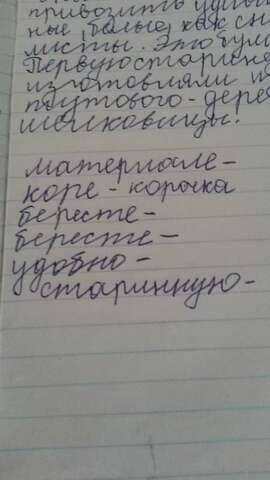 привозить
ные, белые, как
листы. Это
Первую
изготовляли
тутового дере
шелковицы.
материале-
коре - корочка
бересте-
бересте-
удобно-
старинную-